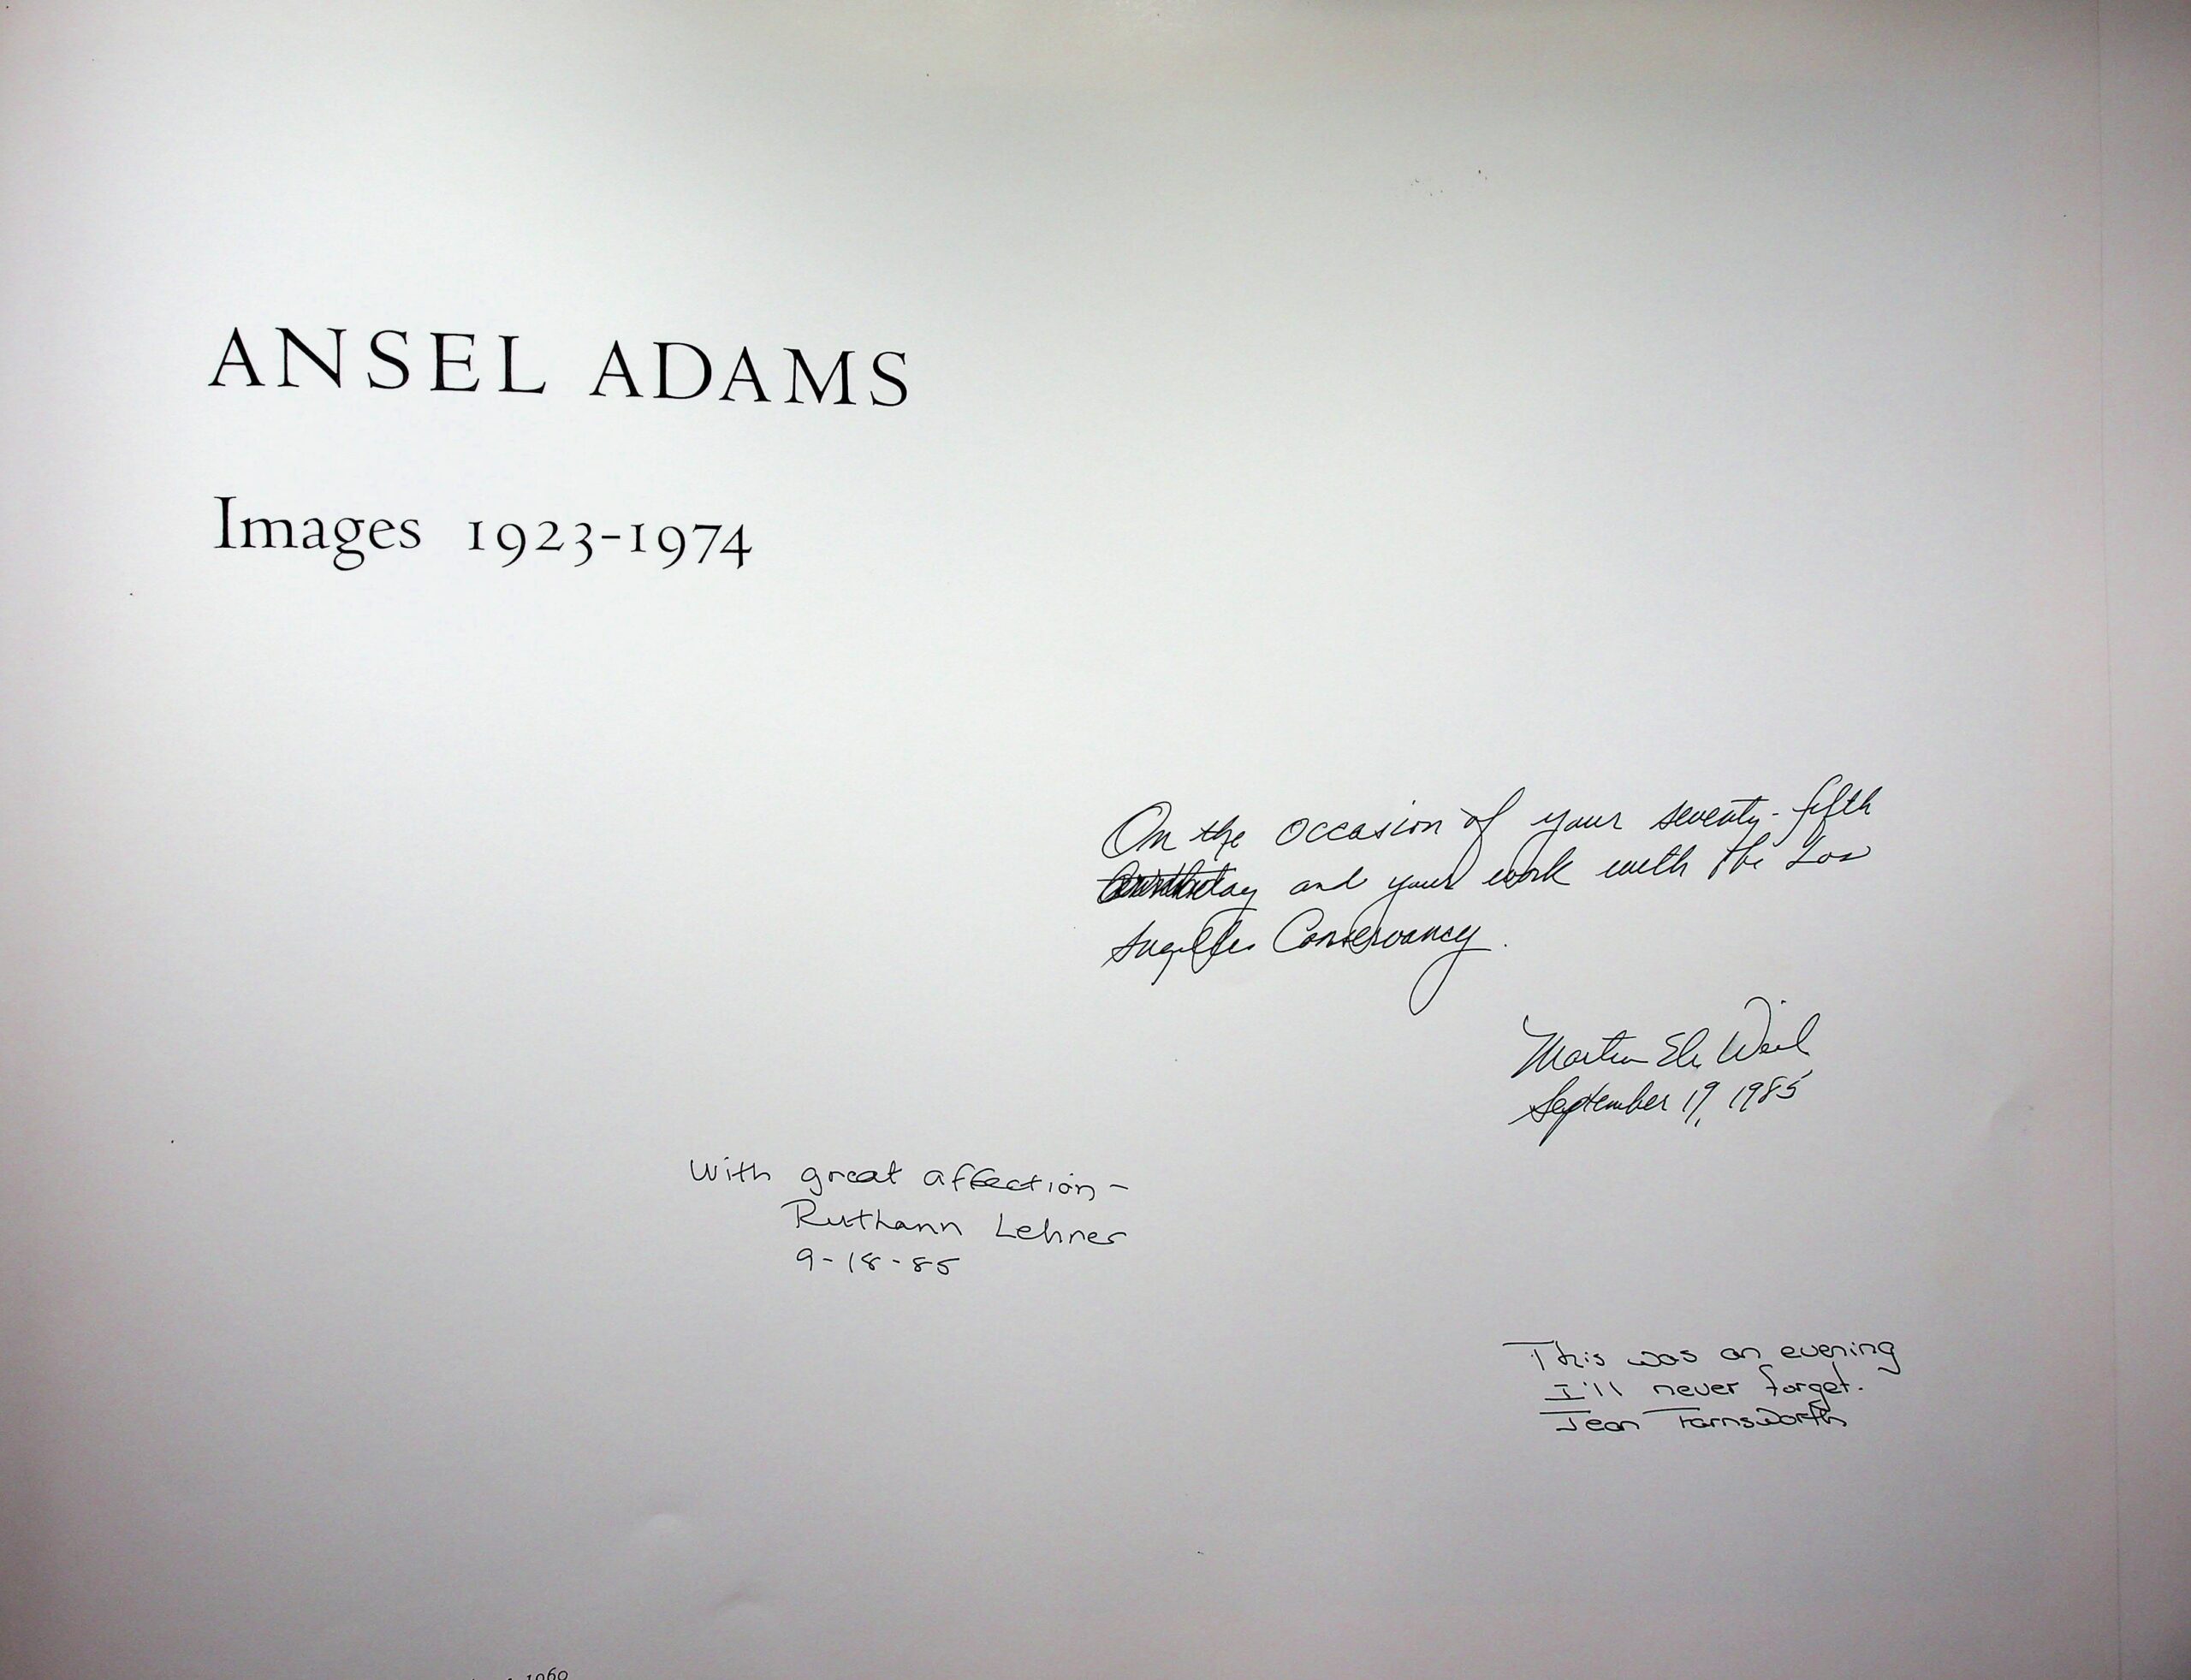 ANSEL ADAMS
Images 1923-1974
On the occasion of your seventy-fifth
birthday and your work with the Los
Angeles Conservancy.
Martin Eli Weil
September 19, 1985
With great affection-
Ruthann Lehner
9-18-85
This was an evening
I'll never forget.
Jean Farnsworth
1960